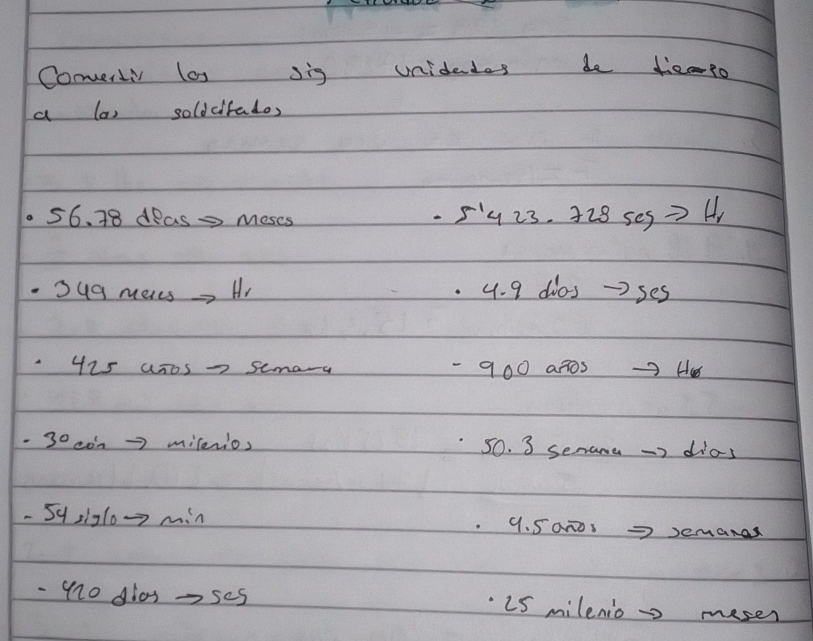 Convertir las sig unidades de tiempo
a las solicitados
• 56.78 días ⇒ meses
- 5'423.728 seg ⇒ Hr
• 349 meses → Hr
• 4.9 días → seg
• 425 años → semana
- 900 años → Hr
- 30 eón → milenios
• 50.3 semana → días
- 54 siglo → min
• 9.5 años ⇒ semanas
- 420 días → seg
• 25 milenio → meses